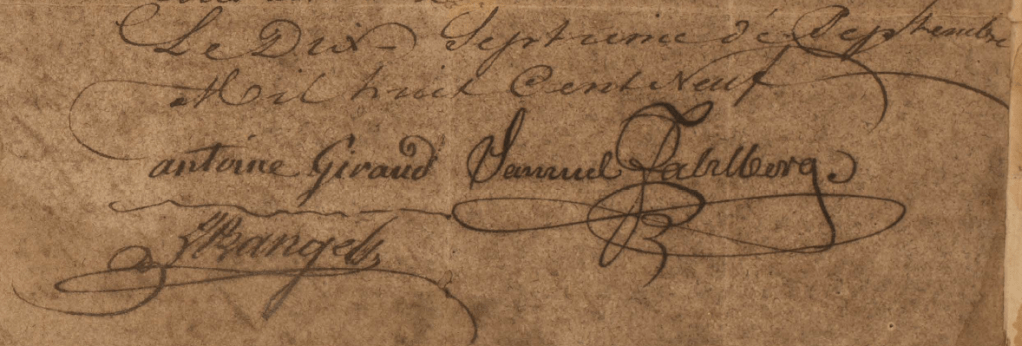 Le Dix-Septieme de Septembre
Mil huit Cent Neuf
antoine Giraud Samuel Fahlberg.